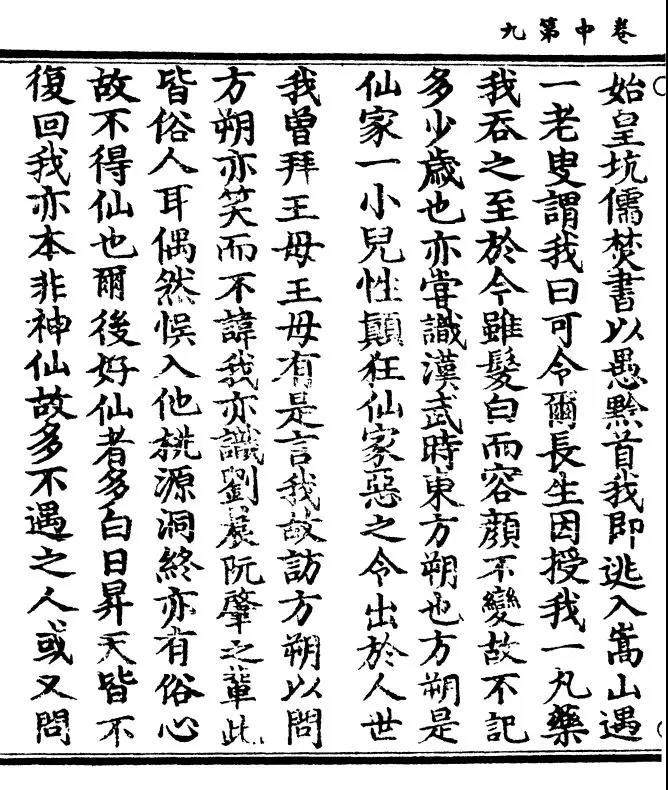 卷中第九
始皇坑儒焚書以愚黔首我即逃入嵩山遇
一老叟謂我曰可令爾長生因授我一丸藥
我吞之至於今雖髮白而容顏不變故不記
多少歲也亦甞識漢武時東方朔也方朔是
仙家一小兒性顛狂仙家惡之令出於人世
我曾拜王母王母有是言我故訪方朔以問
方朔亦笑而不諱我亦識劉晨阮肇之輩此
皆俗人耳偶然悮入他桃源洞終亦有俗心
故不得仙也爾後好仙者多白日昇天皆不
復回我亦本非神仙故多不遇之人或又問